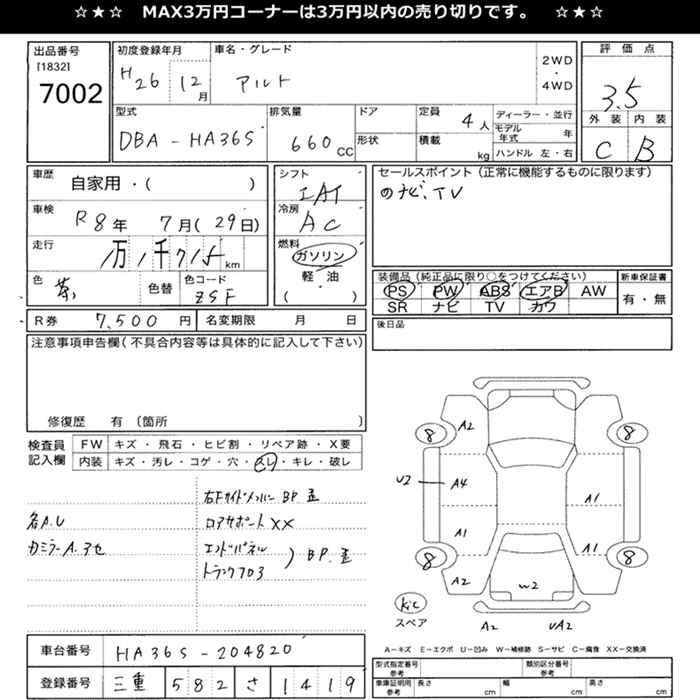 ☆★☆ MAX3万円コーナーは3万円以内の売り切りです。 ☆★☆
出品番号
[1832]
7002
初度登録年月
H26 12月
車名・グレード
アルト
2WD
・
4WD
評価点
3.5
外装 内装
C B
型式
DBA-HA36S
排気量
660 CC
ドア
形状
定員
4人
積載
kg
ディーラー・並行
モデル年式 年
ハンドル 左・右
車歴
自家用・( )
車検
R8年 7月(29日)
走行
km
色
茶
色替
色コード
ZSF
シフト
冷房
AC
燃料
ガソリン
軽・油
( )
セールスポイント(正常に機能するものに限ります)
TV
装備品(純正品に限り○をつけてください)
PS PW ABS エアB AW
SR ナビ TV カワ
新車保証書
有・無
R券 7,500円
名変期限 月 日
後日品
注意事項申告欄(不具合内容等は具体的に記入して下さい)
修復歴 有 〔箇所 〕
検査員記入欄
FW キズ・飛石・ヒビ割・リペア跡・X要
内装 キズ・汚レ・コゲ・穴・スレ・キレ・破レ
右Fサイドメンバー BP歪
各A.U
コアサポートXX
カミラーA.アセ
エンドパネル
トランクフロア
) BP.歪
8
A2
8
U2
A4
A1
A1
A1
8
A2
8
W2
kic
スペア
A2
UA2
A-キズ E-エクボ U-凹み W-補修跡 S-サビ C-腐食 XX-交換済
車台番号
HA36S-204820
登録番号
三重 582 さ 1419
型式指定番号
参考
類別区分番号
参考
車庫証明用
参考
長さ cm
幅 cm
高さ cm